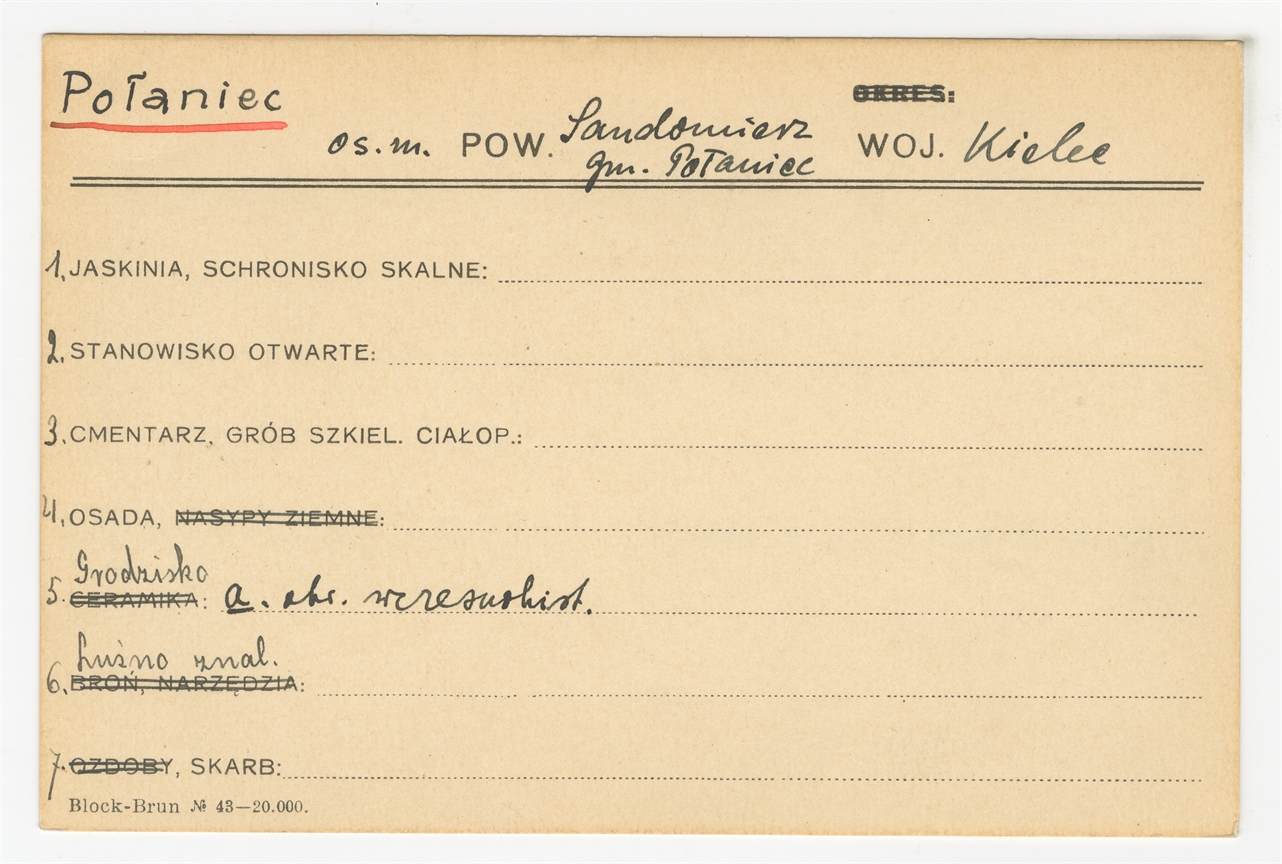 Połaniec
OKRES:
os. m. POW. Sandomierz WOJ. Kielce
gm. Połaniec
1. JASKINIA, SCHRONISKO SKALNE:
2. STANOWISKO OTWARTE:
3. CMENTARZ, GRÓB SZKIEL. CIAŁOP.:
4. OSADA, NASYPY ZIEMNE:
Grodzisko
5. CERAMIKA: a. okr. wczesnohist.
Luźno znal.
6. BROŃ, NARZĘDZIA:
7. OZDOBY, SKARB:
Block-Brun № 43—20.000.